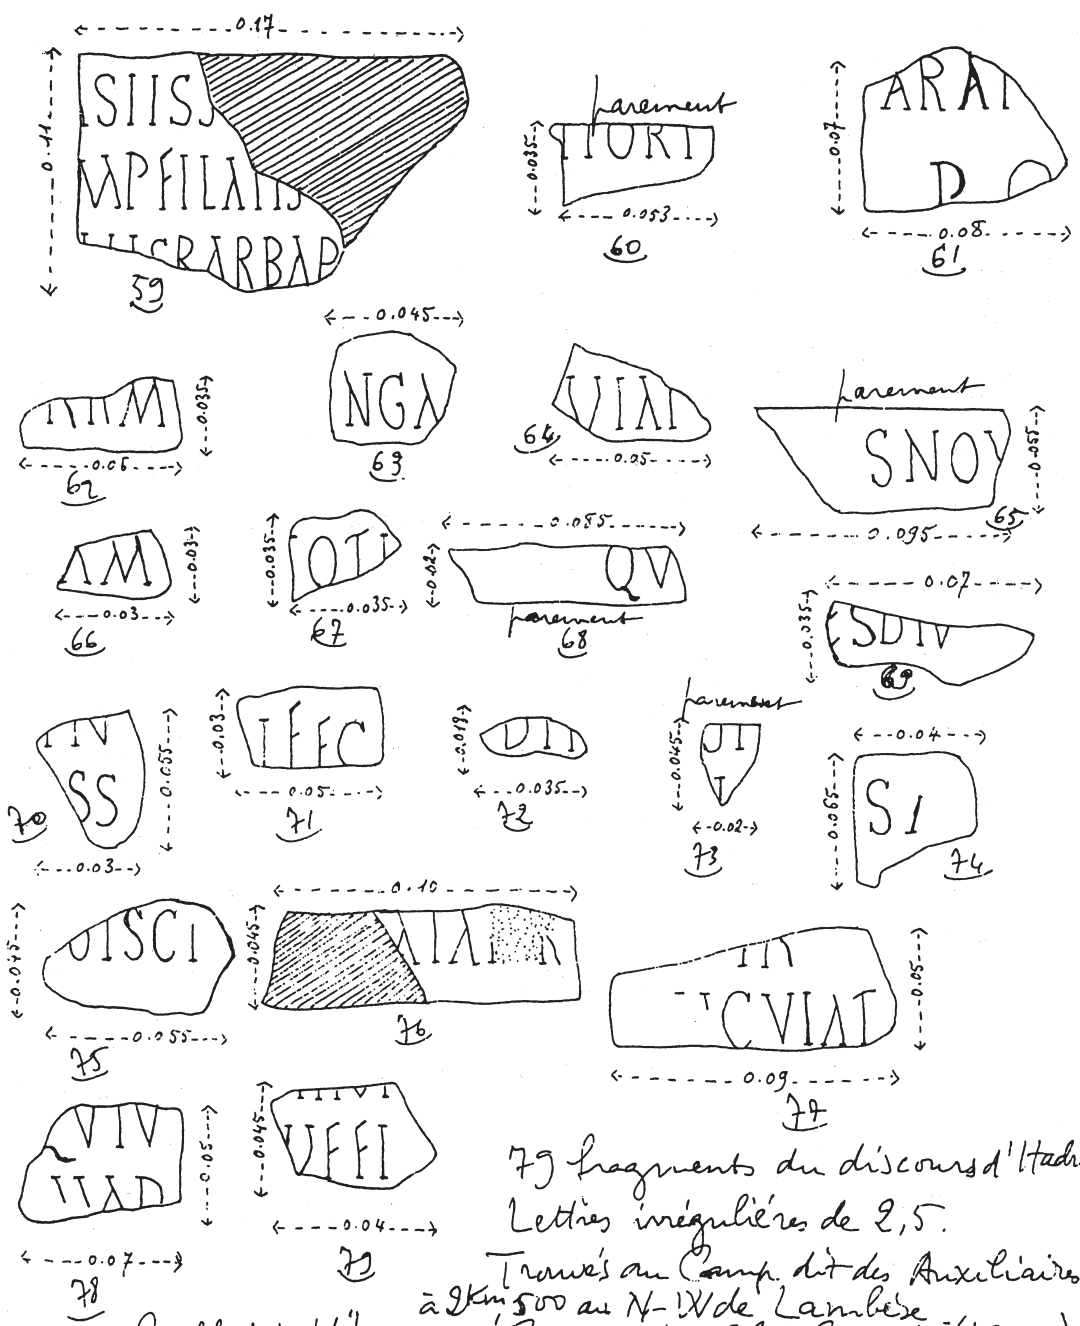 0.17
0.11
SIISS
MPFILATIS
GRARBAP
59
parement
0.035
HORT
0.053
60
0.07
ARAT
D
0.08
61
0.035
M
0.06
62
0.045
NGA
63
VIAT
64
0.05
parement
SNOV
0.055
0.095
65
AM
0.03
0.03
66
0.035
OTI
0.035
67
0.085
0.02
QV
parement
68
0.07
0.035
SDIV
69
IV
SS
0.055
0.03
70
0.03
IFFC
0.05
71
0.019
DII
0.035
72
parement
0.045
I
0.02
73
0.04
0.065
SI
74
0.045
OISCI
0.055
75
0.10
0.045
AIA
R
76
IR
CVIAT
0.05
0.09
77
VIV
0.05
0.07
78
0.045
VFFI
0.04
79
79 fragments du discours d'Hadr
Lettres irrégulières de 2,5.
Trouvés au Camp dit des Auxiliaires
à 2Km 500 au N-W de Lambèse